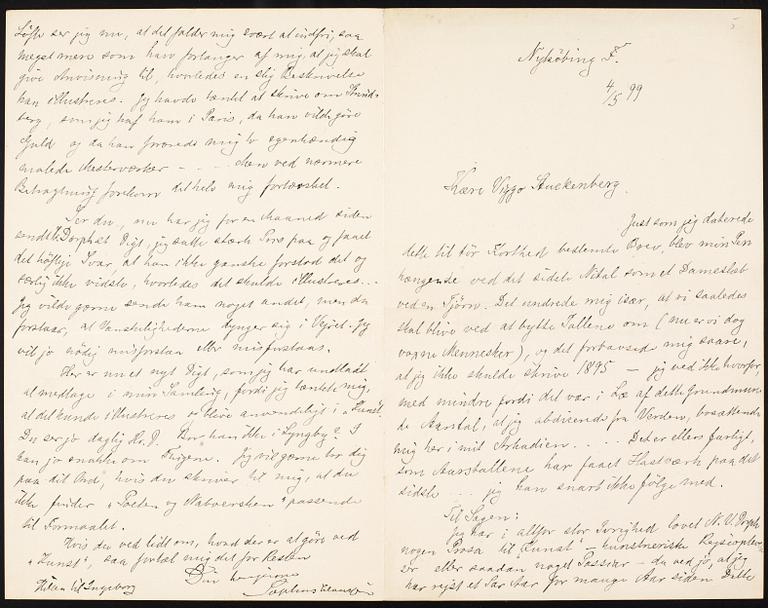 5
Nykøbing F.
4/5 99
Kære Viggo Stuckenberg.
Just som jeg daterede
dette til stor Korthed bestemte Brev, blev min Pen
hængende ved det sidste Nital som et Dameslør
ved en Tjørn. Det undrede mig især, at vi saaledes
skal blive ved at bytte Tallene om (nu er vi dog
voxne Mennesker), og det forbavsede mig saare,
at jeg ikke skulde skrive 1895 — jeg ved ikke hvorfor,
med mindre fordi det var i Læ af dette Grundmur-
de Aarstal, at jeg abdicerede fra Verden, bosættende
mig her i mit Arkadien.... Det er ellers farligt,
som Aarstallene har faaet Hastværk paa det
sidste ... jeg kan snart ikke følge med.
Til Sagen:
Jeg har i altfor stor Ivrighed lovet N. V. Dorph
nogen Prosa til Kunst — kunstneriske Rejseoplevel-
ser eller saadan noget Passiar — du ved jo, at jeg
har rejst et Par Aar for mange Aar siden Dette
Løfte ser jeg nu, at det falder mig svært at indfri, saa
meget mere som han forlanger af mig, at jeg skal
give Anvisning til, hvorledes en slig Beskrivelse
kan illustreres. Jeg havde tænkt at skrive om Strind-
berg, som jeg traf ham i Paris, da han vilde gøre
Guld og da han forærede mig to egenhændig
malede Mesterværker - - - - Men ved nærmere
Betragtning forekom det hele mig fortærsket.
Ser du, nu har jeg for en Maaned siden
sendt Dorph et Digt, jeg satte stærk Pris paa og faaet
det høflige Svar, at han ikke ganske forstod det og
særlig ikke vidste, hvorledes det skulde illustreres...
Jeg vilde gerne sende ham noget andet, men du
forstaar, at Vanskelighederne dynger sig i Vejret. Jeg
vil jo nødig misforstaa eller misforstaas.
Her er nu et nyt Digt, som jeg har undladt
at medtage i min Samling, fordi jeg tænkte mig,
at det kunde illustreres og blive anvendeligt i „Kunst".
Du ser jo daglig Hr. D. Bor han ikke i Lyngby? I
kan jo snakke om Tingene. Jeg vil gerne tro dig
paa dit Ord, hvis du skriver til mig, at du
ikke finder „Poeten og Nabversken" passende
til Formaalet.
Hvis du ved lidt om, hvad der er at gøre ved
„Kunst", saa fortæl mig det for Resten
Din hengivne
Sophus Claussen
Hilsen til Ingeborg